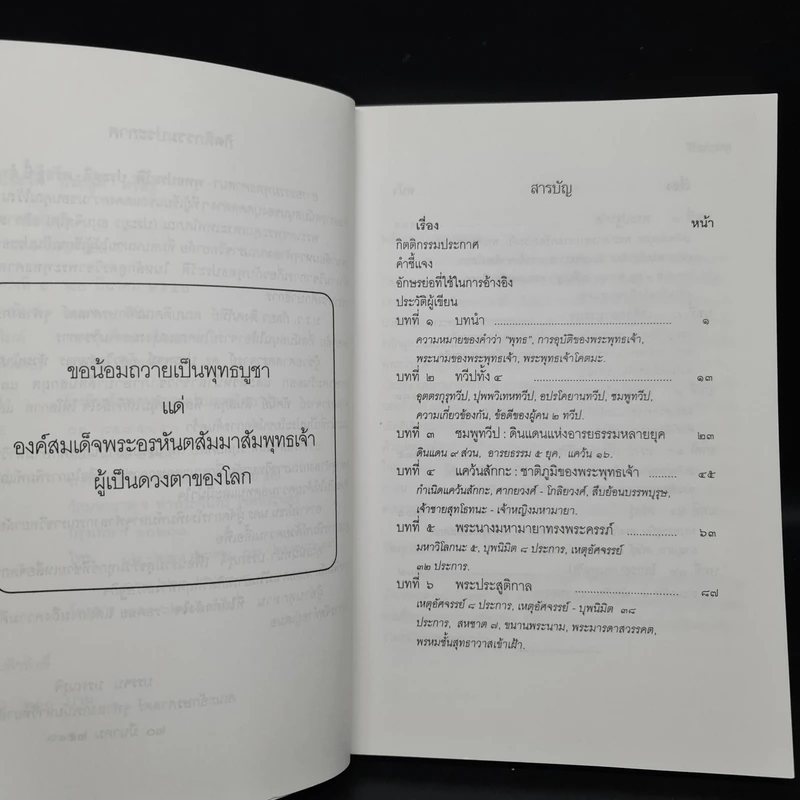 ขอน้อมถวายเป็นพุทธบูชา
แด่
องค์สมเด็จพระอรหันตสัมมาสัมพุทธเจ้า
ผู้เป็นดวงตาของโลก
สารบัญ
เรื่อง หน้า
กิตติกรรมประกาศ
คำชี้แจง
อักษรย่อที่ใช้ในการอ้างอิง
ประวัติผู้เขียน
บทที่ ๑ บทนำ ๑
ความหมายของคำว่า "พุทธ", การอุบัติของพระพุทธเจ้า,
พระนามของพระพุทธเจ้า, พระพุทธเจ้าโคตมะ.
บทที่ ๒ ทวีปทั้ง ๔ ๑๓
อุตตรกุรุทวีป, ปุพพวิเทหทวีป, อปรโคยานทวีป, ชมพูทวีป,
ความเกี่ยวข้องกัน, ข้อดีของผู้คน ๒ ทวีป.
บทที่ ๓ ชมพูทวีป : ดินแดนแห่งอารยธรรมหลายยุค ๒๓
ดินแดน ๙ ส่วน, อารยธรรม ๕ ยุค, แคว้น ๑๖.
บทที่ ๔ แคว้นสักกะ : ชาติภูมิของพระพุทธเจ้า ๔๕
กำเนิดแคว้นสักกะ, ศากยวงศ์ - โกลิยวงศ์, สืบย้อนบรรพบุรุษ,
เจ้าชายสุทโธทนะ - เจ้าหญิงมหามายา.
บทที่ ๕ พระนางมหามายาทรงพระครรภ์ ๖๓
มหาวิโลกนะ ๕, บุพนิมิต ๘ ประการ, เหตุอัศจรรย์
๓๒ ประการ.
บทที่ ๖ พระประสูติกาล ๘๗
เหตุอัศจรรย์ ๘ ประการ, เหตุอัศจรรย์ - บุพนิมิต ๓๘
ประการ, สหชาต ๗, ขนานพระนาม, พระมารดาสวรรคต,
พรหมชั้นสุทธาวาสเข้าเฝ้า.